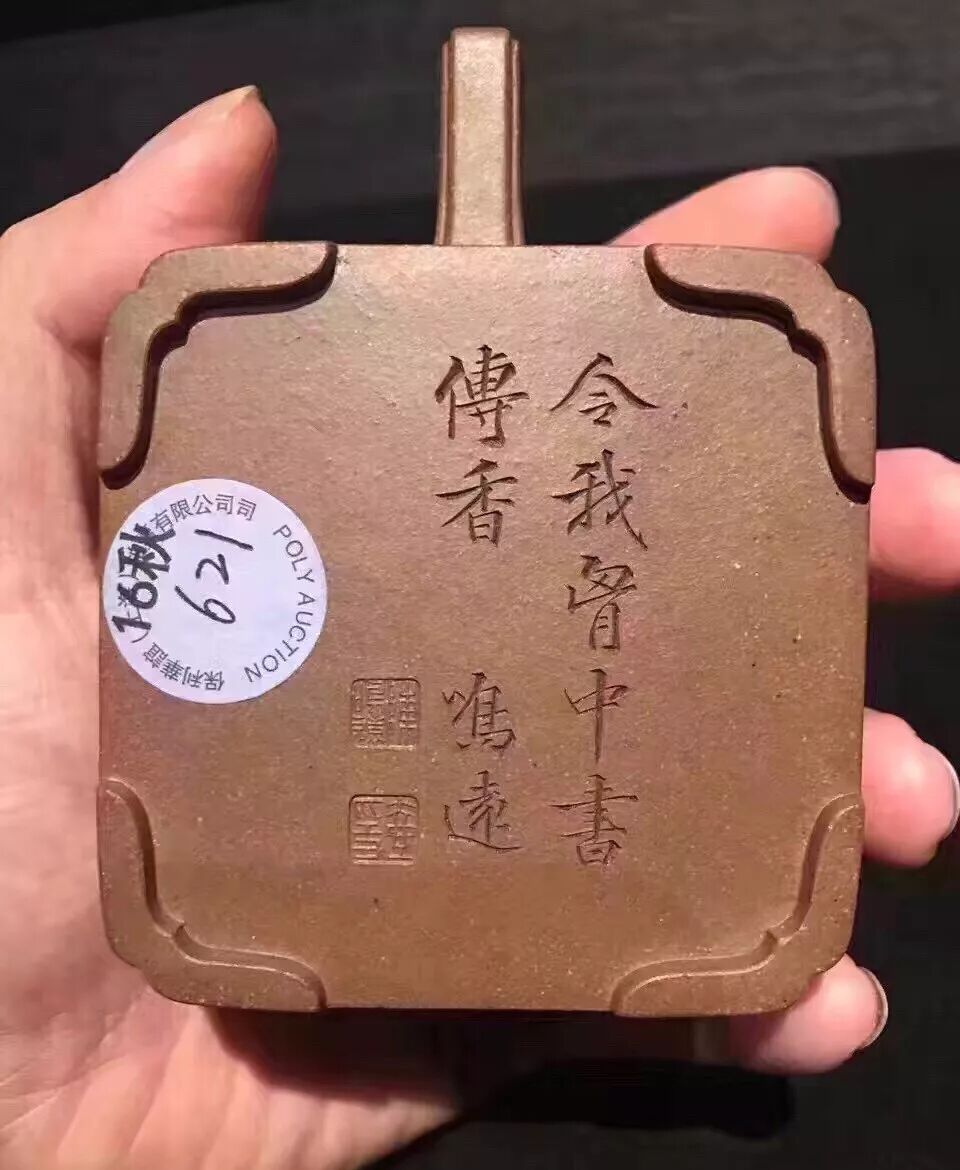 令我胷中書
傳香 鳴遠
保利華誼（上
有限公司
POLY AUCTION
16秋
621